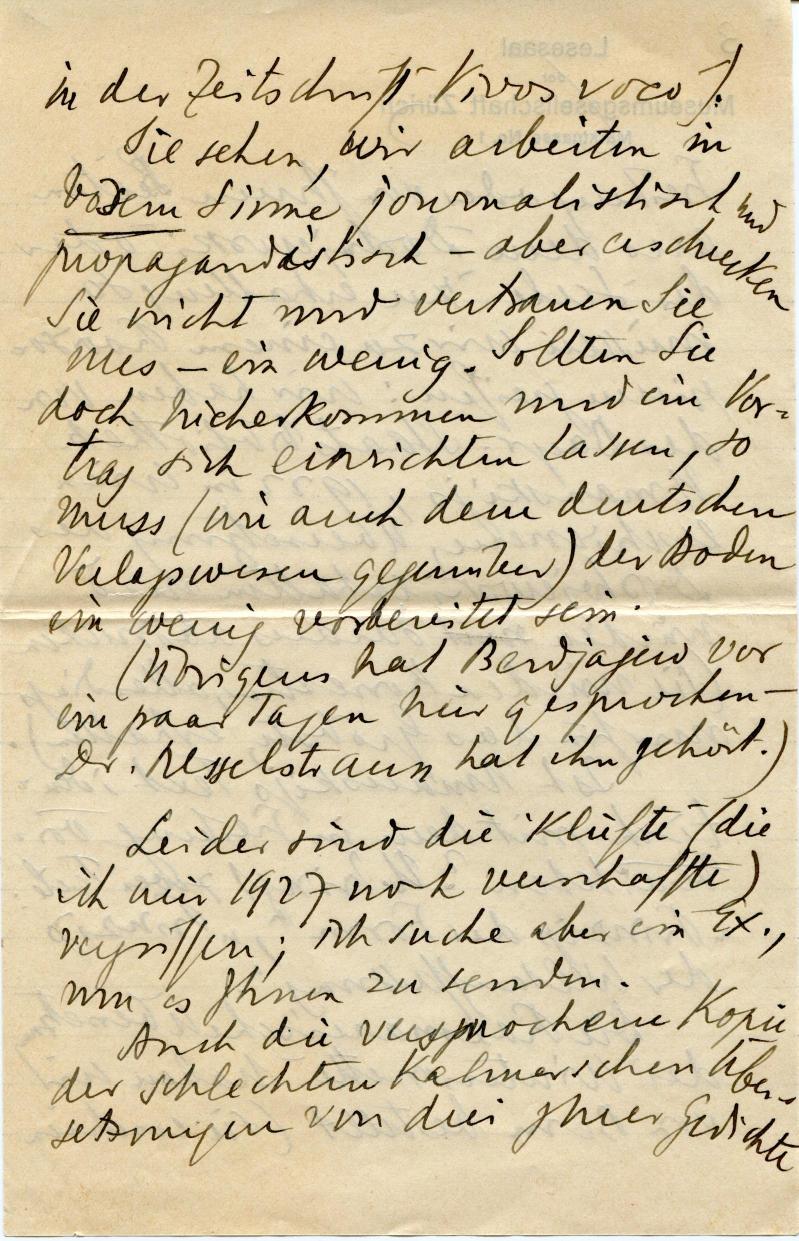 in der Zeitschrift Vivos voco)!
Sie sehen, wir arbeiten in
diesem Sinne journalistisch und
propagandistisch – aber erschrecken
Sie nicht und vertrauen Sie
uns – ein wenig. Sollten Sie
doch hieherkommen und ein Vor-
trag sich einrichten lassen, so
muss (wie auch dem deutschen
Verlagswesen gegenüber) der Boden
ein wenig vorbereitet sein.
(Übrigens hat Berdjajew vor
ein paar Tagen hier gesprochen –
Dr. Nesselstrauss hat ihn gehört.)
Leider sind die Klüfte (die
ich mir 1927 noch verschaffte)
vergriffen; ich suche aber ein Ex.,
um es Ihnen zu senden.
Auch die versprochene Kopie
der schlechten Kalmerschen Über-
setzungen von drei Ihrer Gedichte